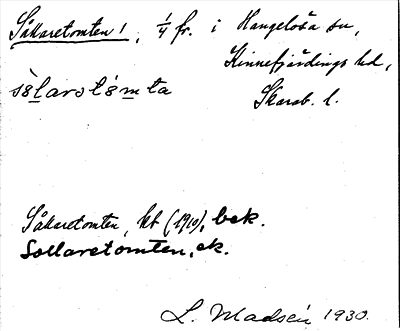 Såkaretomten 1, 1/4 fr. i Hangelösa sn,
Kinnefjärdings hd,
Skarab. l.
Såkaretomten, kt (1910), bek.
Sollaretomten, ek.
L. Madsén 1930.